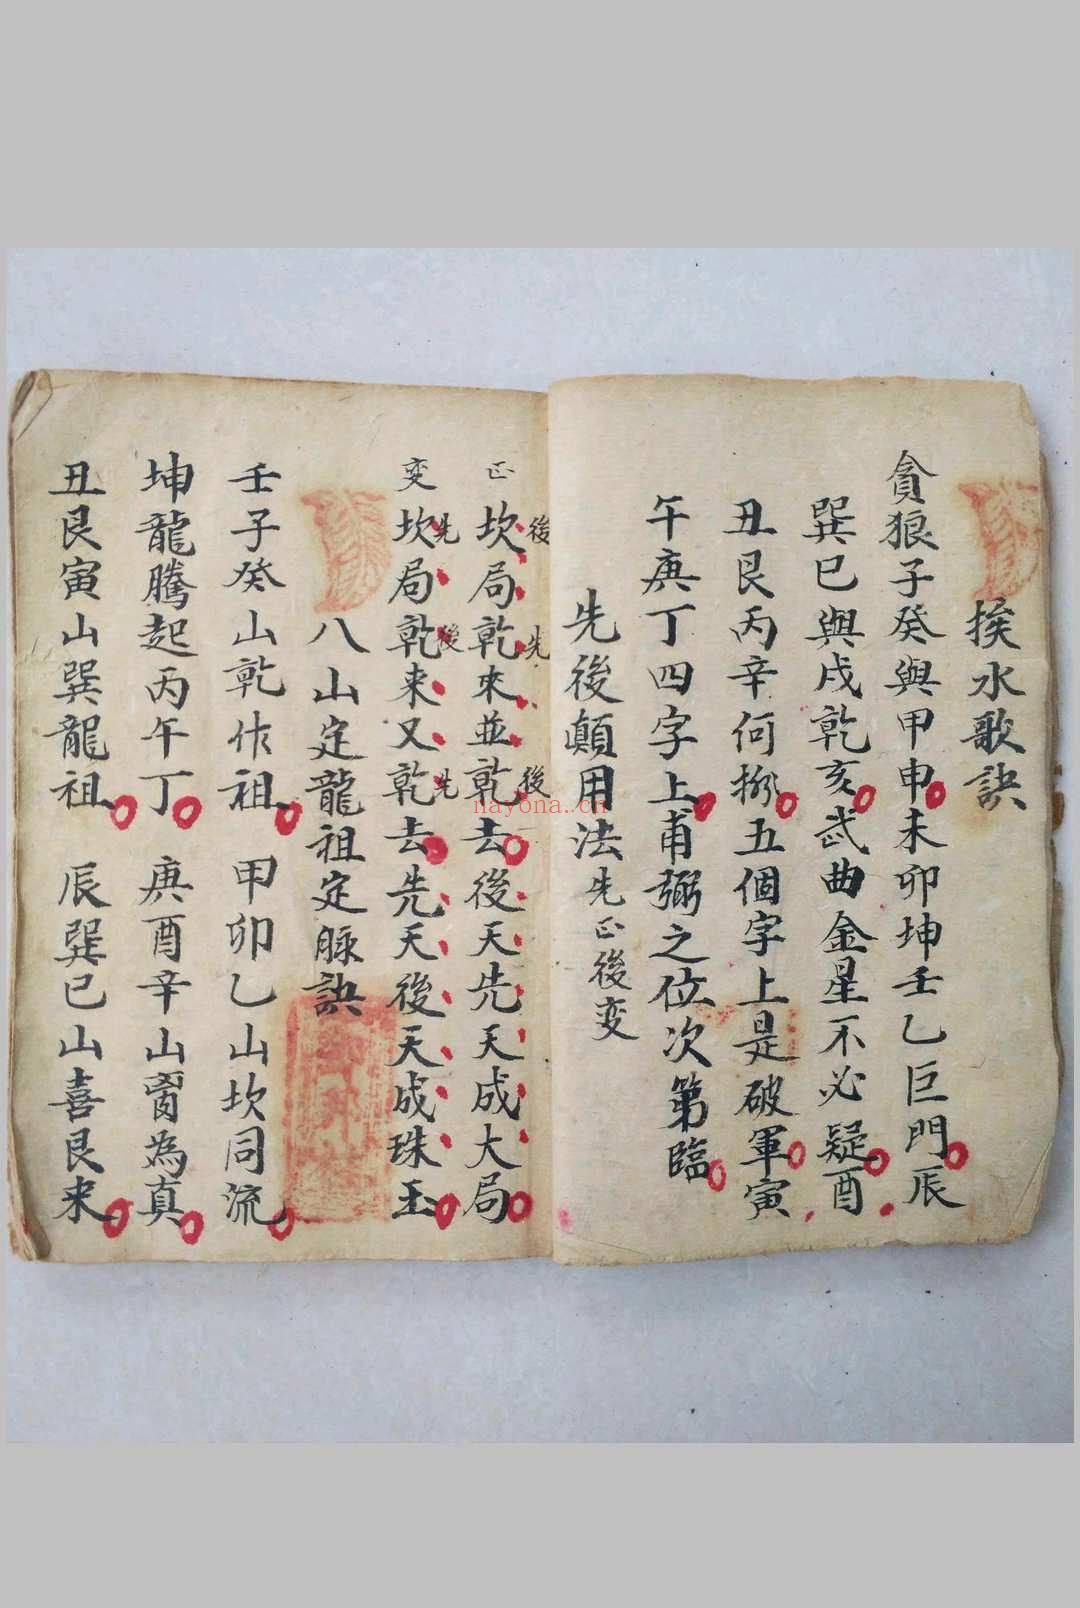 挨水歌訣
貪狼子癸與甲申未卯坤壬乙巨門辰
巽巳與戌乾亥武曲金星不必疑酉
丑艮丙辛何挪五個字上是破軍寅
午庚丁四字上甫弼之位次第臨
先後顛用法先正後变
正坎局乾來並乾去後天先天成大局
後先後
变坎局乾来又乾去先天後天成珠玉
先後先
八山定龍祖定脉訣
壬子癸山乾作祖甲卯乙山坎同流
坤龍騰起丙午丁庚酉辛山為真
丑艮寅山巽龍祖辰巽巳山喜艮来
nayona.cn